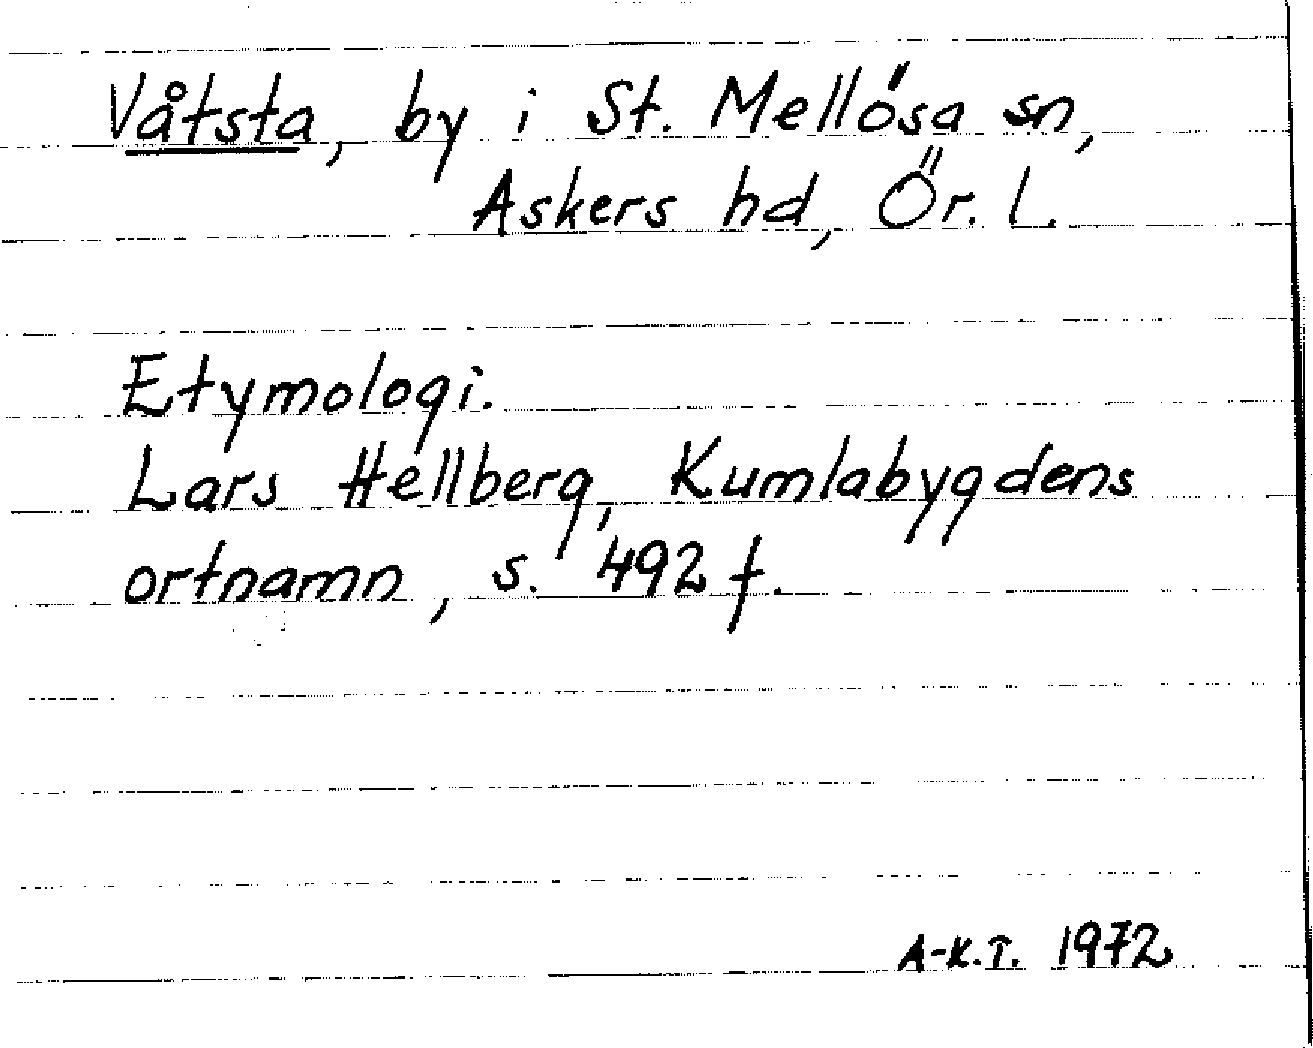 Våtsta, by i St. Mellösa sn,
Askers hd, Ör. l.
Etymologi.
Lars Hellberg, Kumlabygdens
ortnamn, s. 492 f.
A-K.T. 1972